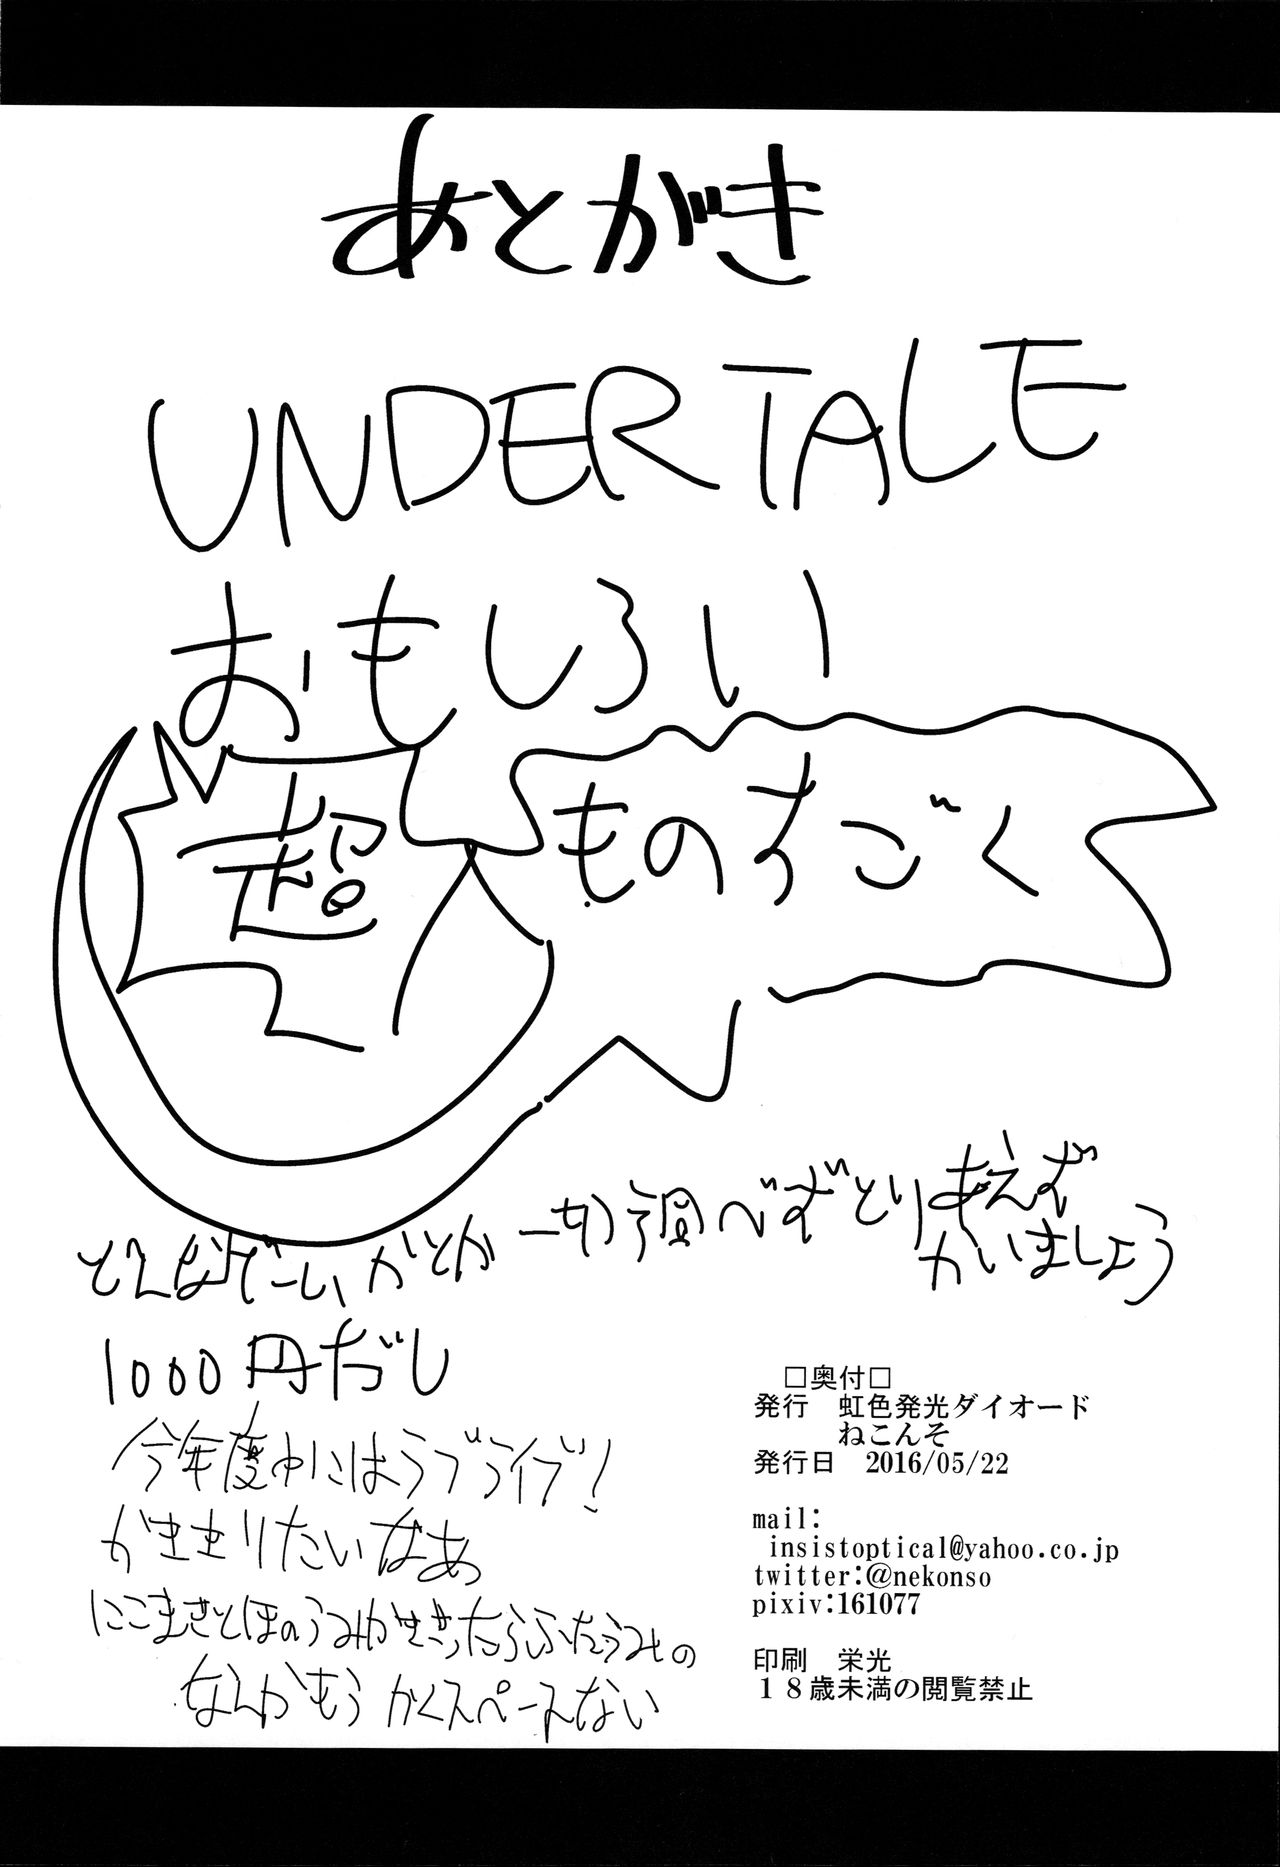 あとがき
UNDERTALE
おもしろい
超
ものすごく
どんなげーむかとか一切調べずとりあえず
かいましょう
1000円だし
今年度中にはラブライブ!
かききりたいなあ
にこまきとほのうみかききったらふたなりうみの
なんかもうかくスペースない
□奥付□
発行 虹色発光ダイオード
ねこんそ
発行日 2016/05/22
mail:
insistoptical@yahoo.co.jp
twitter:@nekonso
pixiv:161077
印刷 栄光
18歳未満の閲覧禁止